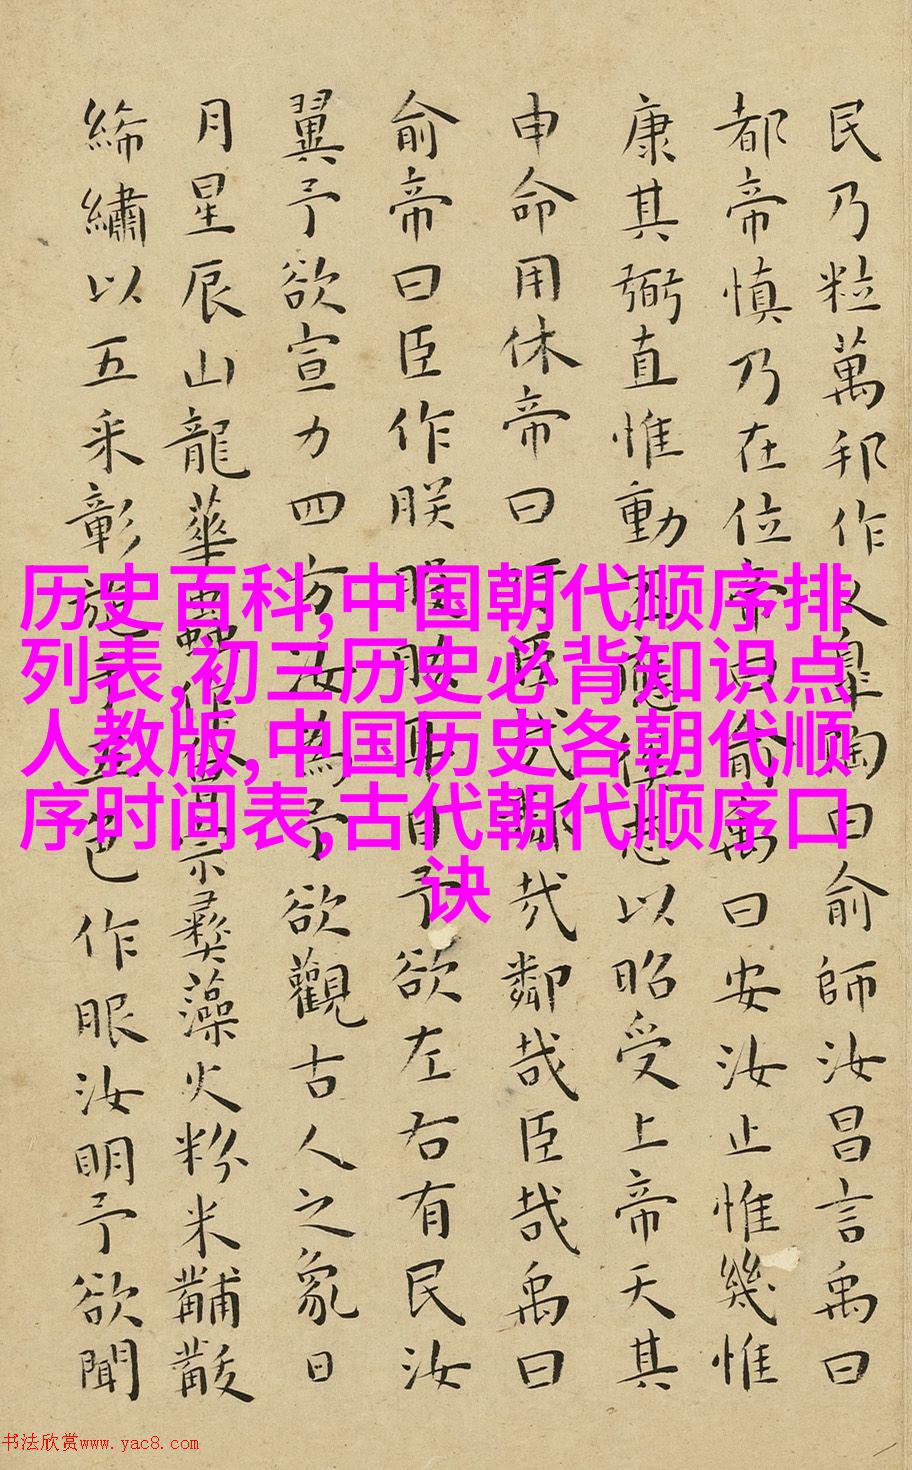 民乃粒萬邦作乂臯陶曰俞師汝昌言禹曰
都帝慎乃在位帝曰俞禹曰安汝止惟幾惟
康其弼直惟動丕應徯志以昭受上帝天其
申命用休帝曰吁臣哉鄰哉鄰哉臣哉禹曰
俞帝曰臣作朕股肱耳目予欲左右有民汝
翼予欲宣力四方汝為予欲觀古人之象日
月星辰山龍華蟲作會宗彝藻火粉米黼黻
絺繡以五采彰施于五色作服汝明予欲聞
历史百科,中国朝代顺序排
列表,初三历史必背知识点
人教版,中国历史各朝代顺
序时间表,古代朝代顺序口
诀
书法欣赏www.yac8.com